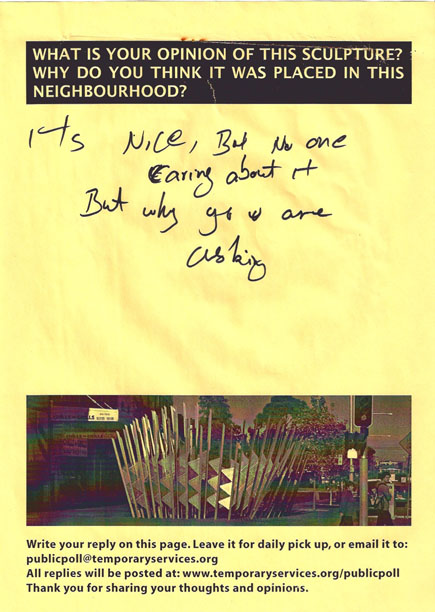 WHAT IS YOUR OPINION OF THIS SCULPTURE?
WHY DO YOU THINK IT WAS PLACED IN THIS
NEIGHBOURHOOD?
it's Nice, But No one
Caring about it
But why you are
asking
Write your reply on this page. Leave it for daily pick up, or email it to:
publicpoll@temporaryservices.org
All replies will be posted at: www.temporaryservices.org/publicpoll
Thank you for sharing your thoughts and opinions.